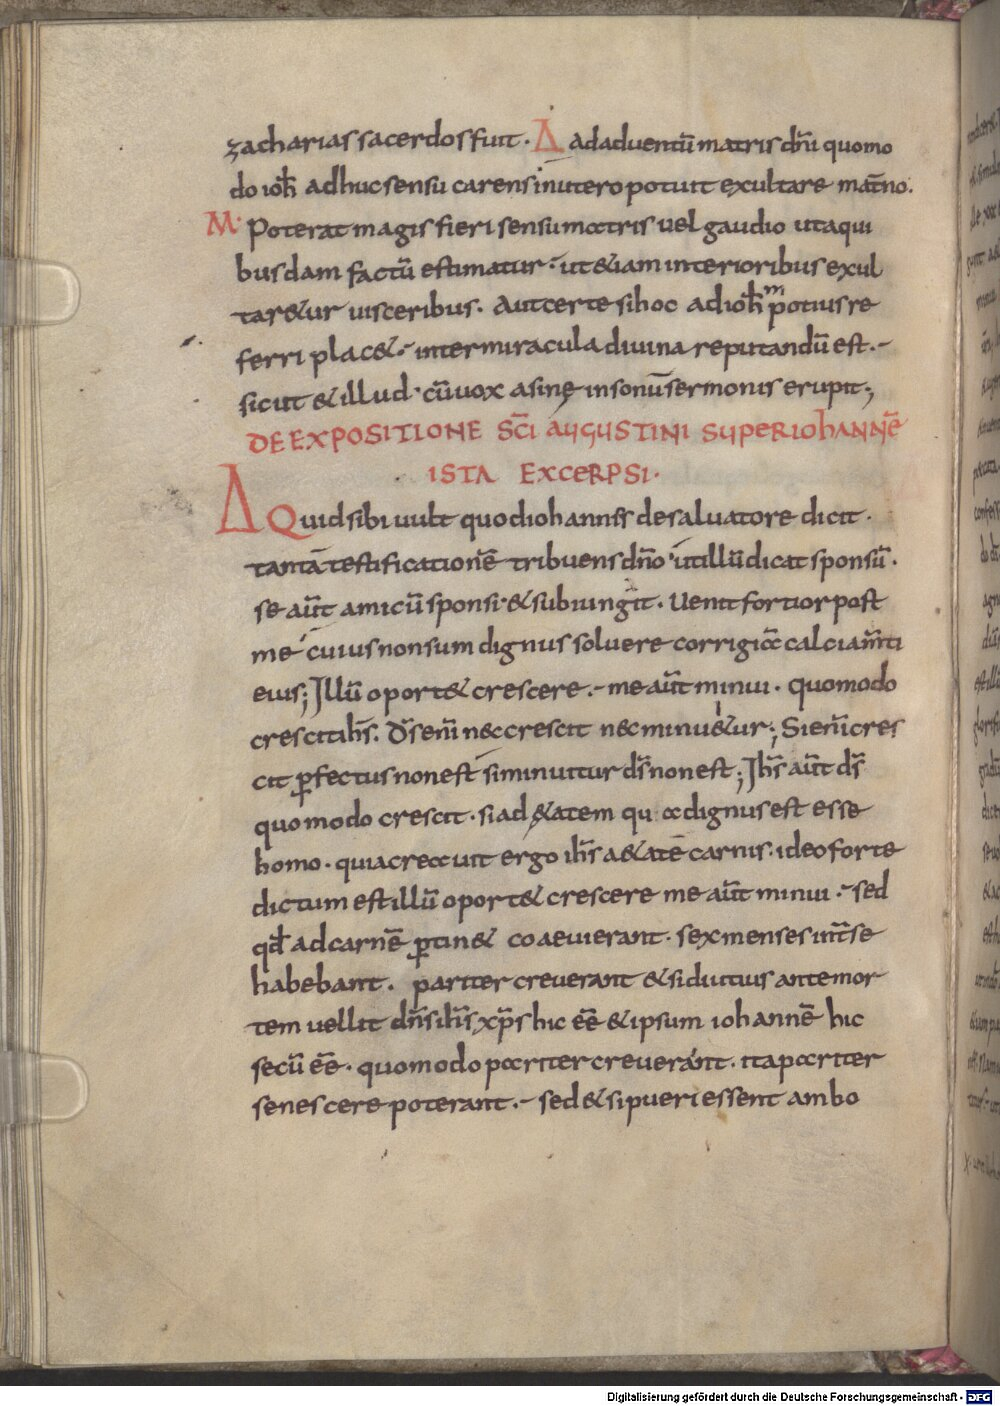 zacharias sacerdos fuit · Δ Ad aduentū matris dn̄i quomo
do ioh̄ adhuc sensu carens in utero potuit exultare mat̄no.
M· Poterat magis fieri sensu matris uel gaudio ut a qui
busdam factū estimatur · ut &iam interioribus exul
tar&ur uisceribus · Aut certe si hoc ad ioh̄m potius re
ferri plac& · inter miracula diuina reputandū est ·
sicut & illud · cū uox asinę in sonū sermonis erupit;
DE EXPOSITIONE SC̄I AUGUSTINI SUPER IOHANNĒ
ISTA EXCERPSI·
Δ Quid sibi uult quod iohannis de saluatore dicit ·
tantā testificationē tribuens dn̄o · ut illū dicat sponsū ·
se aut̄ amicū sponsi · & subiungit · Uenit fortior post
me cuius non sum dignus soluere corrigia calciam̄ti
eius; Illū oport& crescere · me aut̄ minui · quomodo
crescit ih̄s · Ds̄ enī nec crescit nec minu&ur; Si enī cres
cit ꝑfectus non est si minuitur ds̄ non est; Ih̄s aut̄ ds̄
quomodo crescit · si ad &atem qua dignus est esse
homo · quia creuit ergo ih̄s a&atē carnis · ideo forte
dictum est illū oport& crescere me aut̄ minui · sed
qd̄ ad carnē ꝑtin& coaeui erant · sex menses int̄ se
habebant · pariter creuerant & si diutius ante mor
tem uellit dn̄s ih̄s xp̄s hic eē & ipsum iohannē hic
secū eē · quomodo pariter creuerant · ita pariter
senescere poterant · sed & si pueri essent ambo
Digitalisierung gefördert durch die Deutsche Forschungsgemeinschaft - DFG